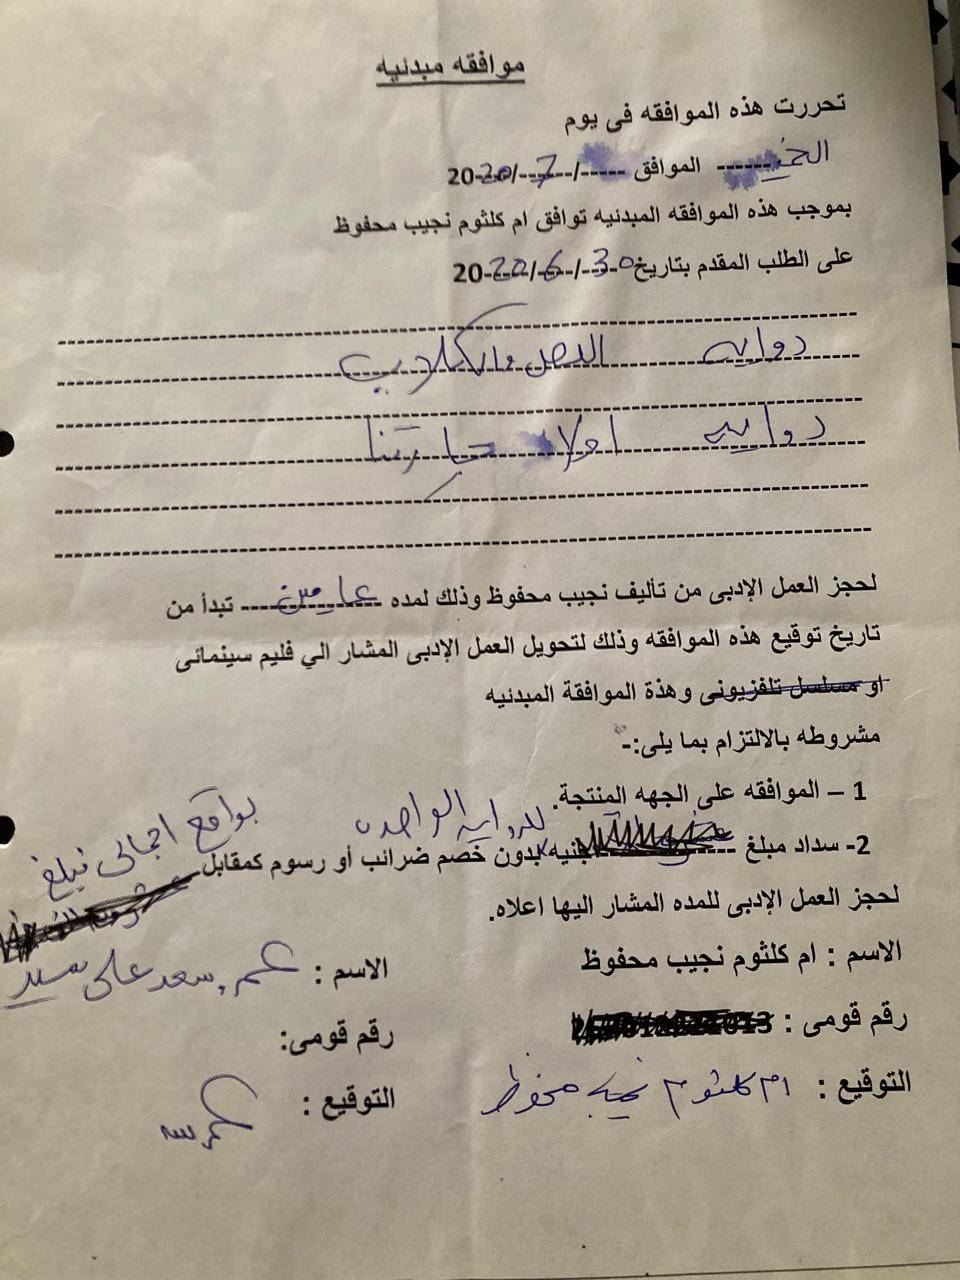 موافقه مبدئيه
تحررت هذه الموافقه فى يوم
الموافق -----/--7--/--2020
بموجب هذه الموافقه المبدئيه توافق ام كلثوم نجيب محفوظ
على الطلب المقدم بتاريخ 30/6/2020
روايه اللص والكلاب
روايه اولاد حارتنا
لحجز العمل الإدبى من تأليف نجيب محفوظ وذلك لمده عامين تبدأ من
تاريخ توقيع هذه الموافقه وذلك لتحويل العمل الإدبى المشار الي فليم سينمائى
او مسلسل تلفزيونى وهذة الموافقة المبدئيه
مشروطه بالالتزام بما يلى:-
1 – الموافقه على الجهه المنتجة.
للروايه الواحده
بواقع اجمالى مبلغ
2- سداد مبلغ ---------- جنيه بدون خصم ضرائب أو رسوم كمقابل
لحجز العمل الإدبى للمده المشار اليها اعلاه.
الاسم : ام كلثوم نجيب محفوظ
الاسم : عمرو سعد على سيد
رقم قومى :
رقم قومى:
التوقيع : ام كلثوم نجيب محفوظ
التوقيع :